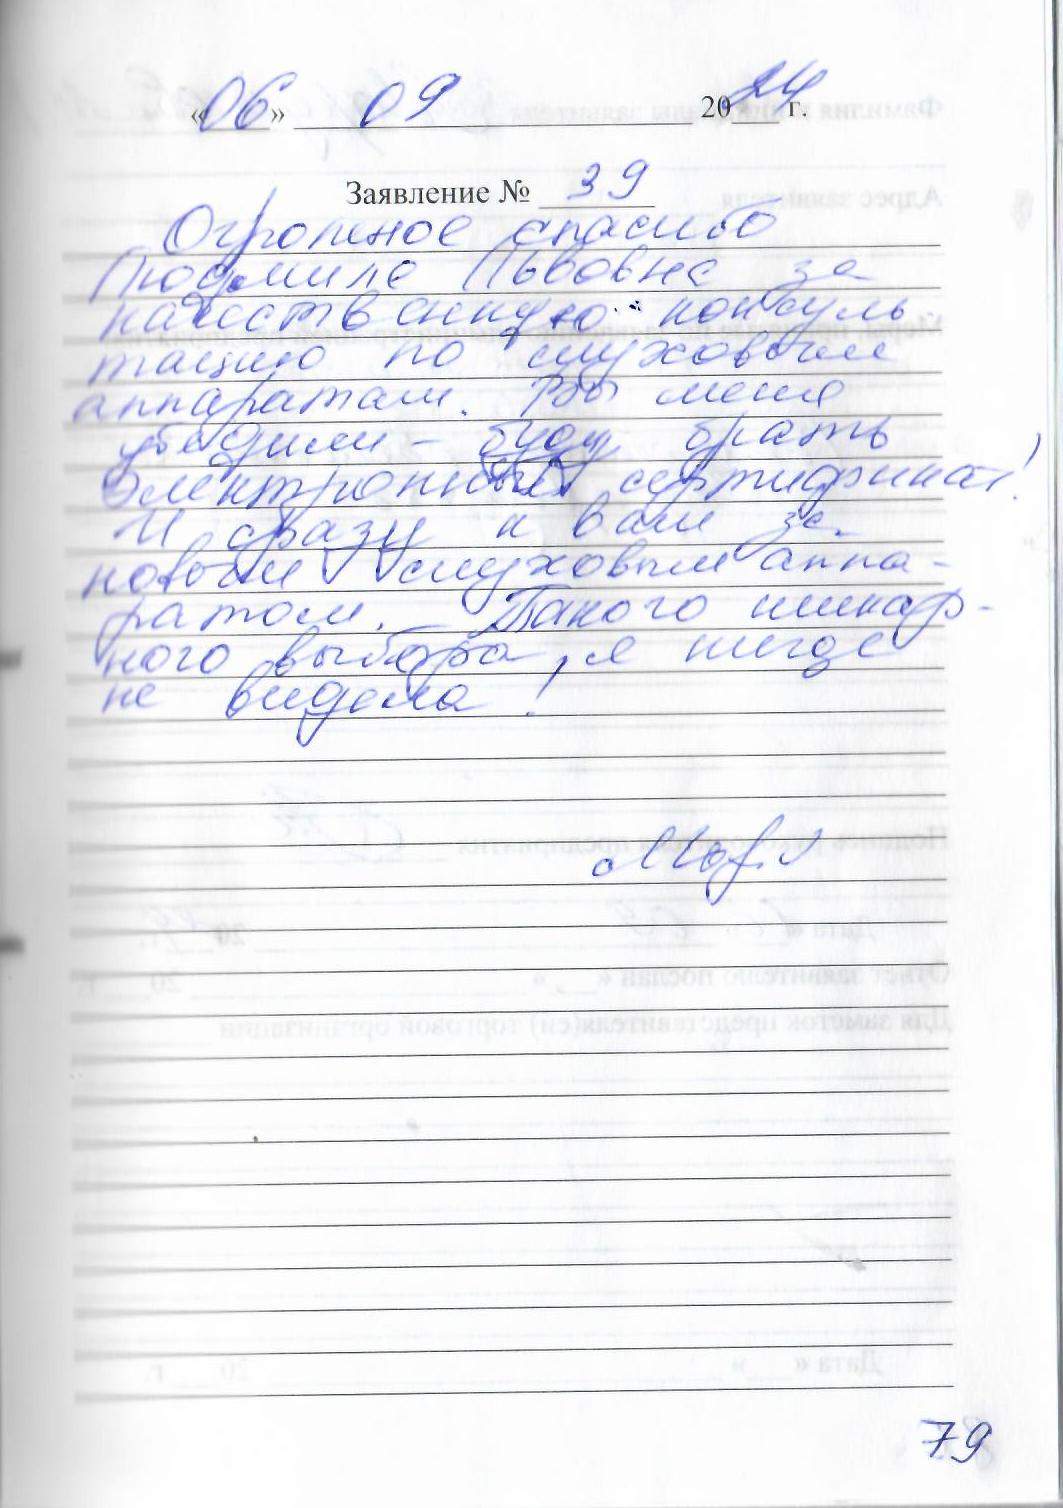 «06» 09 2024 г.
Заявление № 39
Огромное спасибо
Людмиле Львовне за
качественную консуль
тацию по слуховым
аппаратам. Вы меня
убедили – буду брать
электронный сертификат!
И сразу к вам за
новым слуховым аппа-
ратом. Такого шикар-
ного выбора, я нигде
не видела!
79